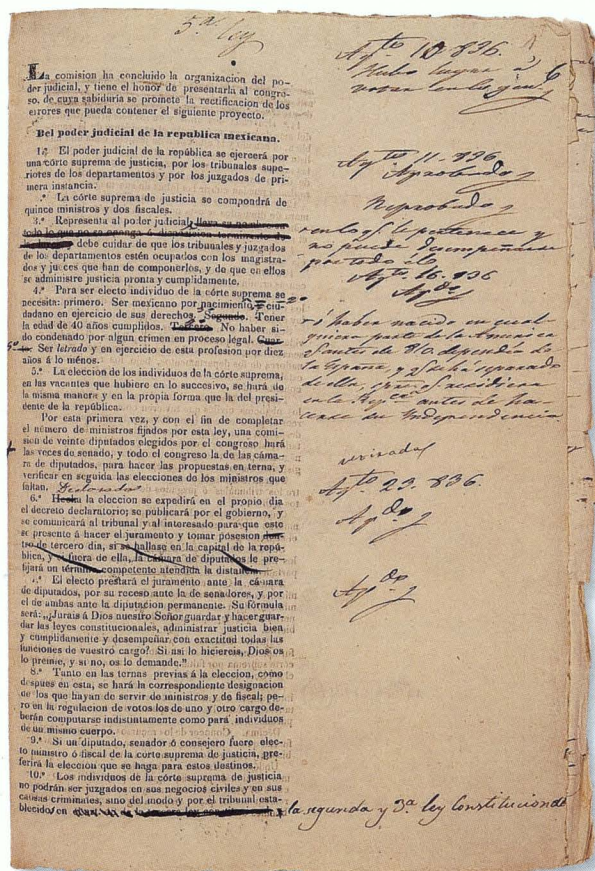 5ª ley
La comision ha concluido la organizacion del po-
der judicial, y tiene el honor de presentarla al congre-
so, de cuya sabiduria se promete la rectificacion de los
errores que pueda contener el siguiente proyecto.
Del poder judicial de la republica mexicano.
1.º El poder judicial de la república se ejercerá por
una córte suprema de justicia, por los tribunales supe-
riotes de los departamentos y por los juzgados de pri-
mera instancia.
.º La córte suprema de justicia se compondrá de
quince ministros y dos fiscales.
3.º Representa al poder judicial,
debe cuidar de que los tribunales y juzgados
de los departamentos estén ocupados con los magistra-
dos y jueces que han de componerlos, y de que en ellos
se administre justicia pronta y cumplidamente.
4.º Para ser electo individuo de la córte suprema se
necesita: primero. Ser mexicano por nacimiento, ciu-
dadano en ejercicio de sus derechos. Segundo. Tener
la edad de 40 años cumplidos. Tercero. No haber si-
do condenado por algun crimen en proceso legal. Cuar-
Ser letrado y en ejercicio de esta profesion por diez
años á lo ménos.
5.º La eleccion de los individuos de la córte suprema,
en las vacantes que hubiere en lo succesivo, se hará de
la misma manera y en la propia forma que la del presi-
dente de la república.
Por esta primera vez, y con el fin de completar
el número de ministros fijados por esta ley, una comi-
sion de veinte diputados elegidos por el congreso hará
las veces do senado, y todo el congreso la de las cáma-
ra de diputados, para hacer las propuestas en terna, y
verificar en seguida las elecciones de los ministros que
faltan.
6.º Hecha la eleccion se expedirá en el propio dia
el decreto declaratorio; se publicará por el gobierno, y
se comunicará al tribunal y al interesado para que este
se presente á hacer el juramento y tomar posesion den-
tro de tercero dia, si se hallase en la capital de la repú-
blica, y si fuera de ella, la cámara de diputados le pre-
fijará un término competente atendida la distancia.
.º El electo prestará el juramento ante la cámara
de diputados, por su receso ante la de senadores, y por
el de ambas ante la diputacion permanente. Su fórmula
será: „¿Jurais á Dios nuestro Señor guardar y hacer guar-
dar las leyes constitucionales, administrar justicia bien
y cumplidamente y desempeñar con exactitud todas las
funciones de vuestro cargo? Si así lo hiciereis, Dios os
lo premie, y si no, os lo demande."
8.º Tanto en las ternas previas á la eleccion, como
despues en esta, se hará la correspondiente designacion
de los que hayan de servir de ministros y de fiscal; pe-
ro en la regulacion de votos los de uno y otro cargo de-
berán computarse indistintamente como para individuos
de un mismo cuerpo.
9.º Si un diputado, senador ó consejero fuere elec-
to ministro ó fiscal de la corte suprema de justicia, pre-
ferirá la eleccion que se haga para estos destinos.
10.º Los individuos de la córte suprema de justicia
no podrán ser juzgados en sus negocios civiles y en sus
causas criminales, sino del modo y por el tribunal esta-
blecido en la segunda y 3ª ley Constitucional
Agto 10 836.
Hubo lugar á
votar en lo gral.
Agto 11 836
Aprobado
Reprobado
en lo q. le pertenece y
no puede desempeñarse
por todo él
Agto 16. 836
Apdo
ó haber nacido en cual-
quiera parte de la America
q. antes de 810. dependia de
la España, y q. se ha separado
de ella, con q. residiera
en la Repca. antes de ha-
cerse su Independencia
revisada
Agto 23. 836.
Apdo
Apdo